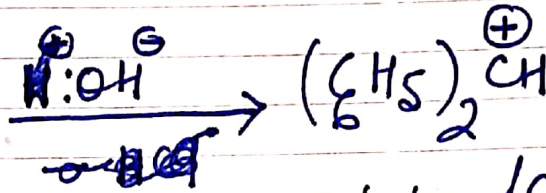 ⊕ ⊖
H:OH
(C6H5)2 CH ⊕